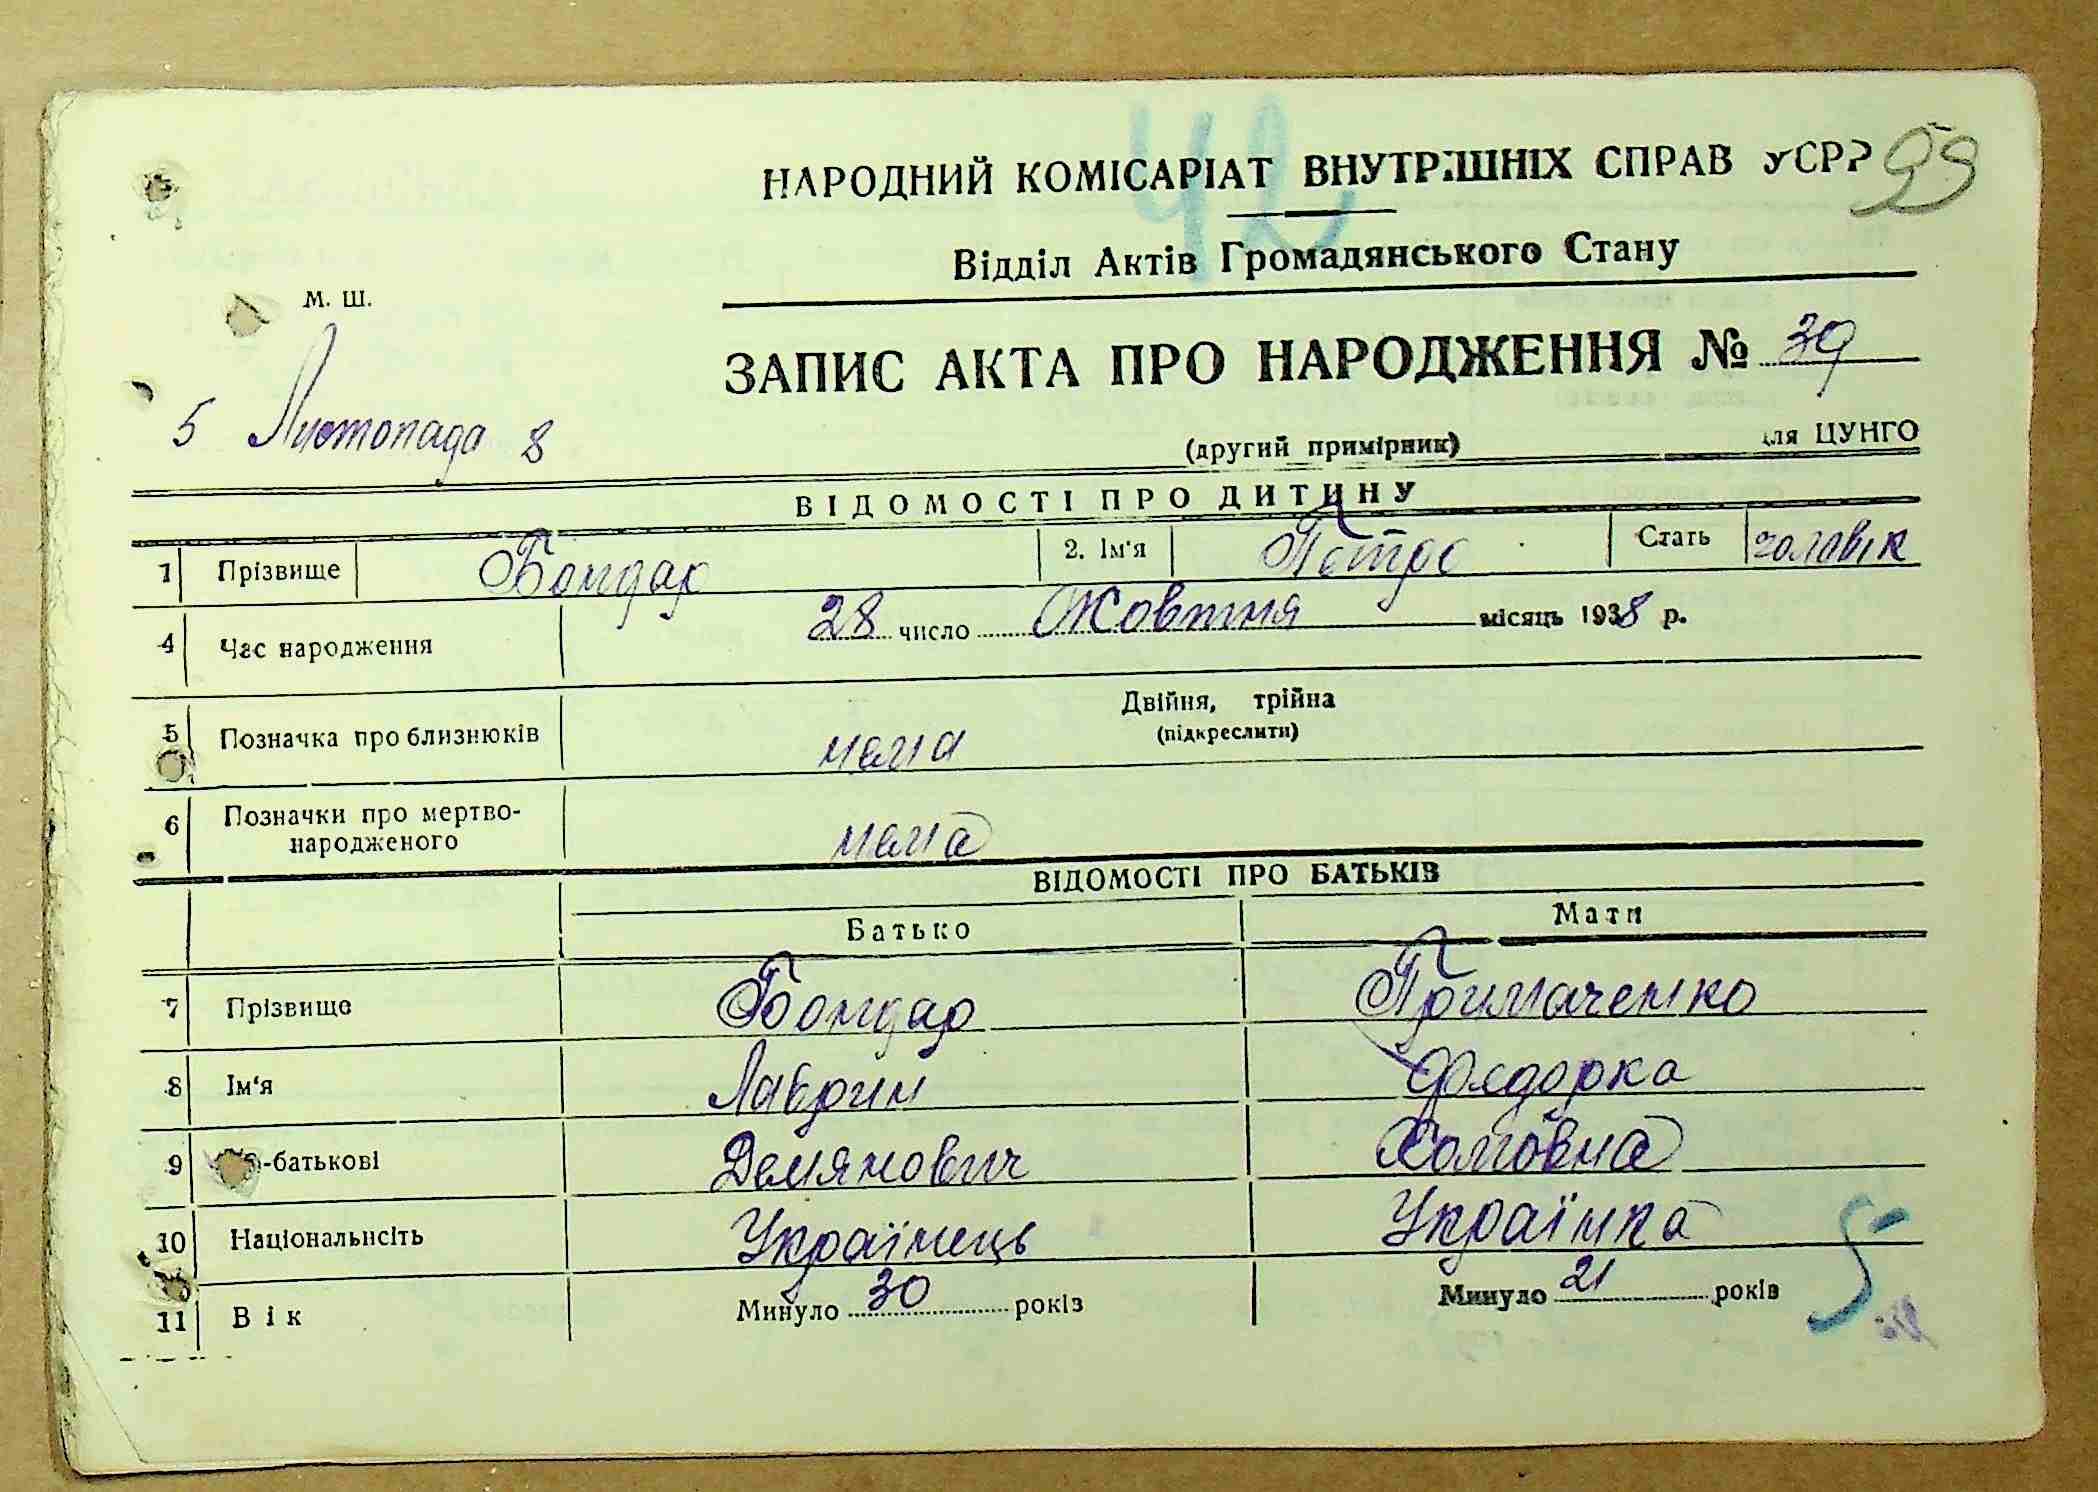 42
НАРОДНИЙ КОМІСАРІАТ ВНУТРІШНІХ СПРАВ УСРР 99
Відділ Актів Громадянського Стану
М. Ш.
ЗАПИС АКТА ПРО НАРОДЖЕННЯ № 39
5 Листопада 8
(другий примірник) для ЦУНГО
ВІДОМОСТІ ПРО ДИТИНУ
1 Прізвище Бондар 2. Ім'я Петро Стать чоловік
4 Час народження 28 число Жовтня місяць 1938 р.
5 Позначка про близнюків нема Двійня, трійна
(підкреслити)
6 Позначки про мертво-
народженого нема
ВІДОМОСТІ ПРО БАТЬКІВ
Батько Мати
7 Прізвище Бондар Примаченко
8 Ім'я Лаврин Федорка
9 По-батькові Демянович Хомовна
10 Національнсіть Українець Українка
5
11 Вік Минуло 30 років Минуло 21 років